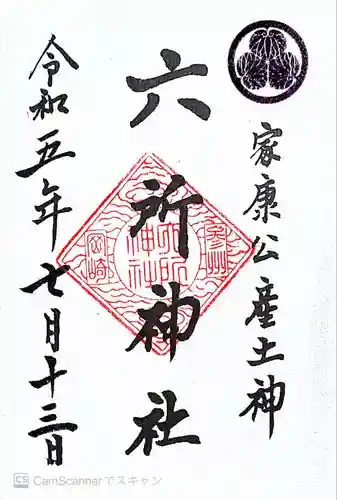 家康公産土神
六所神社
令和五年七月十三日
参州
六所神社
岡崎
CS CamScannerでスキャン